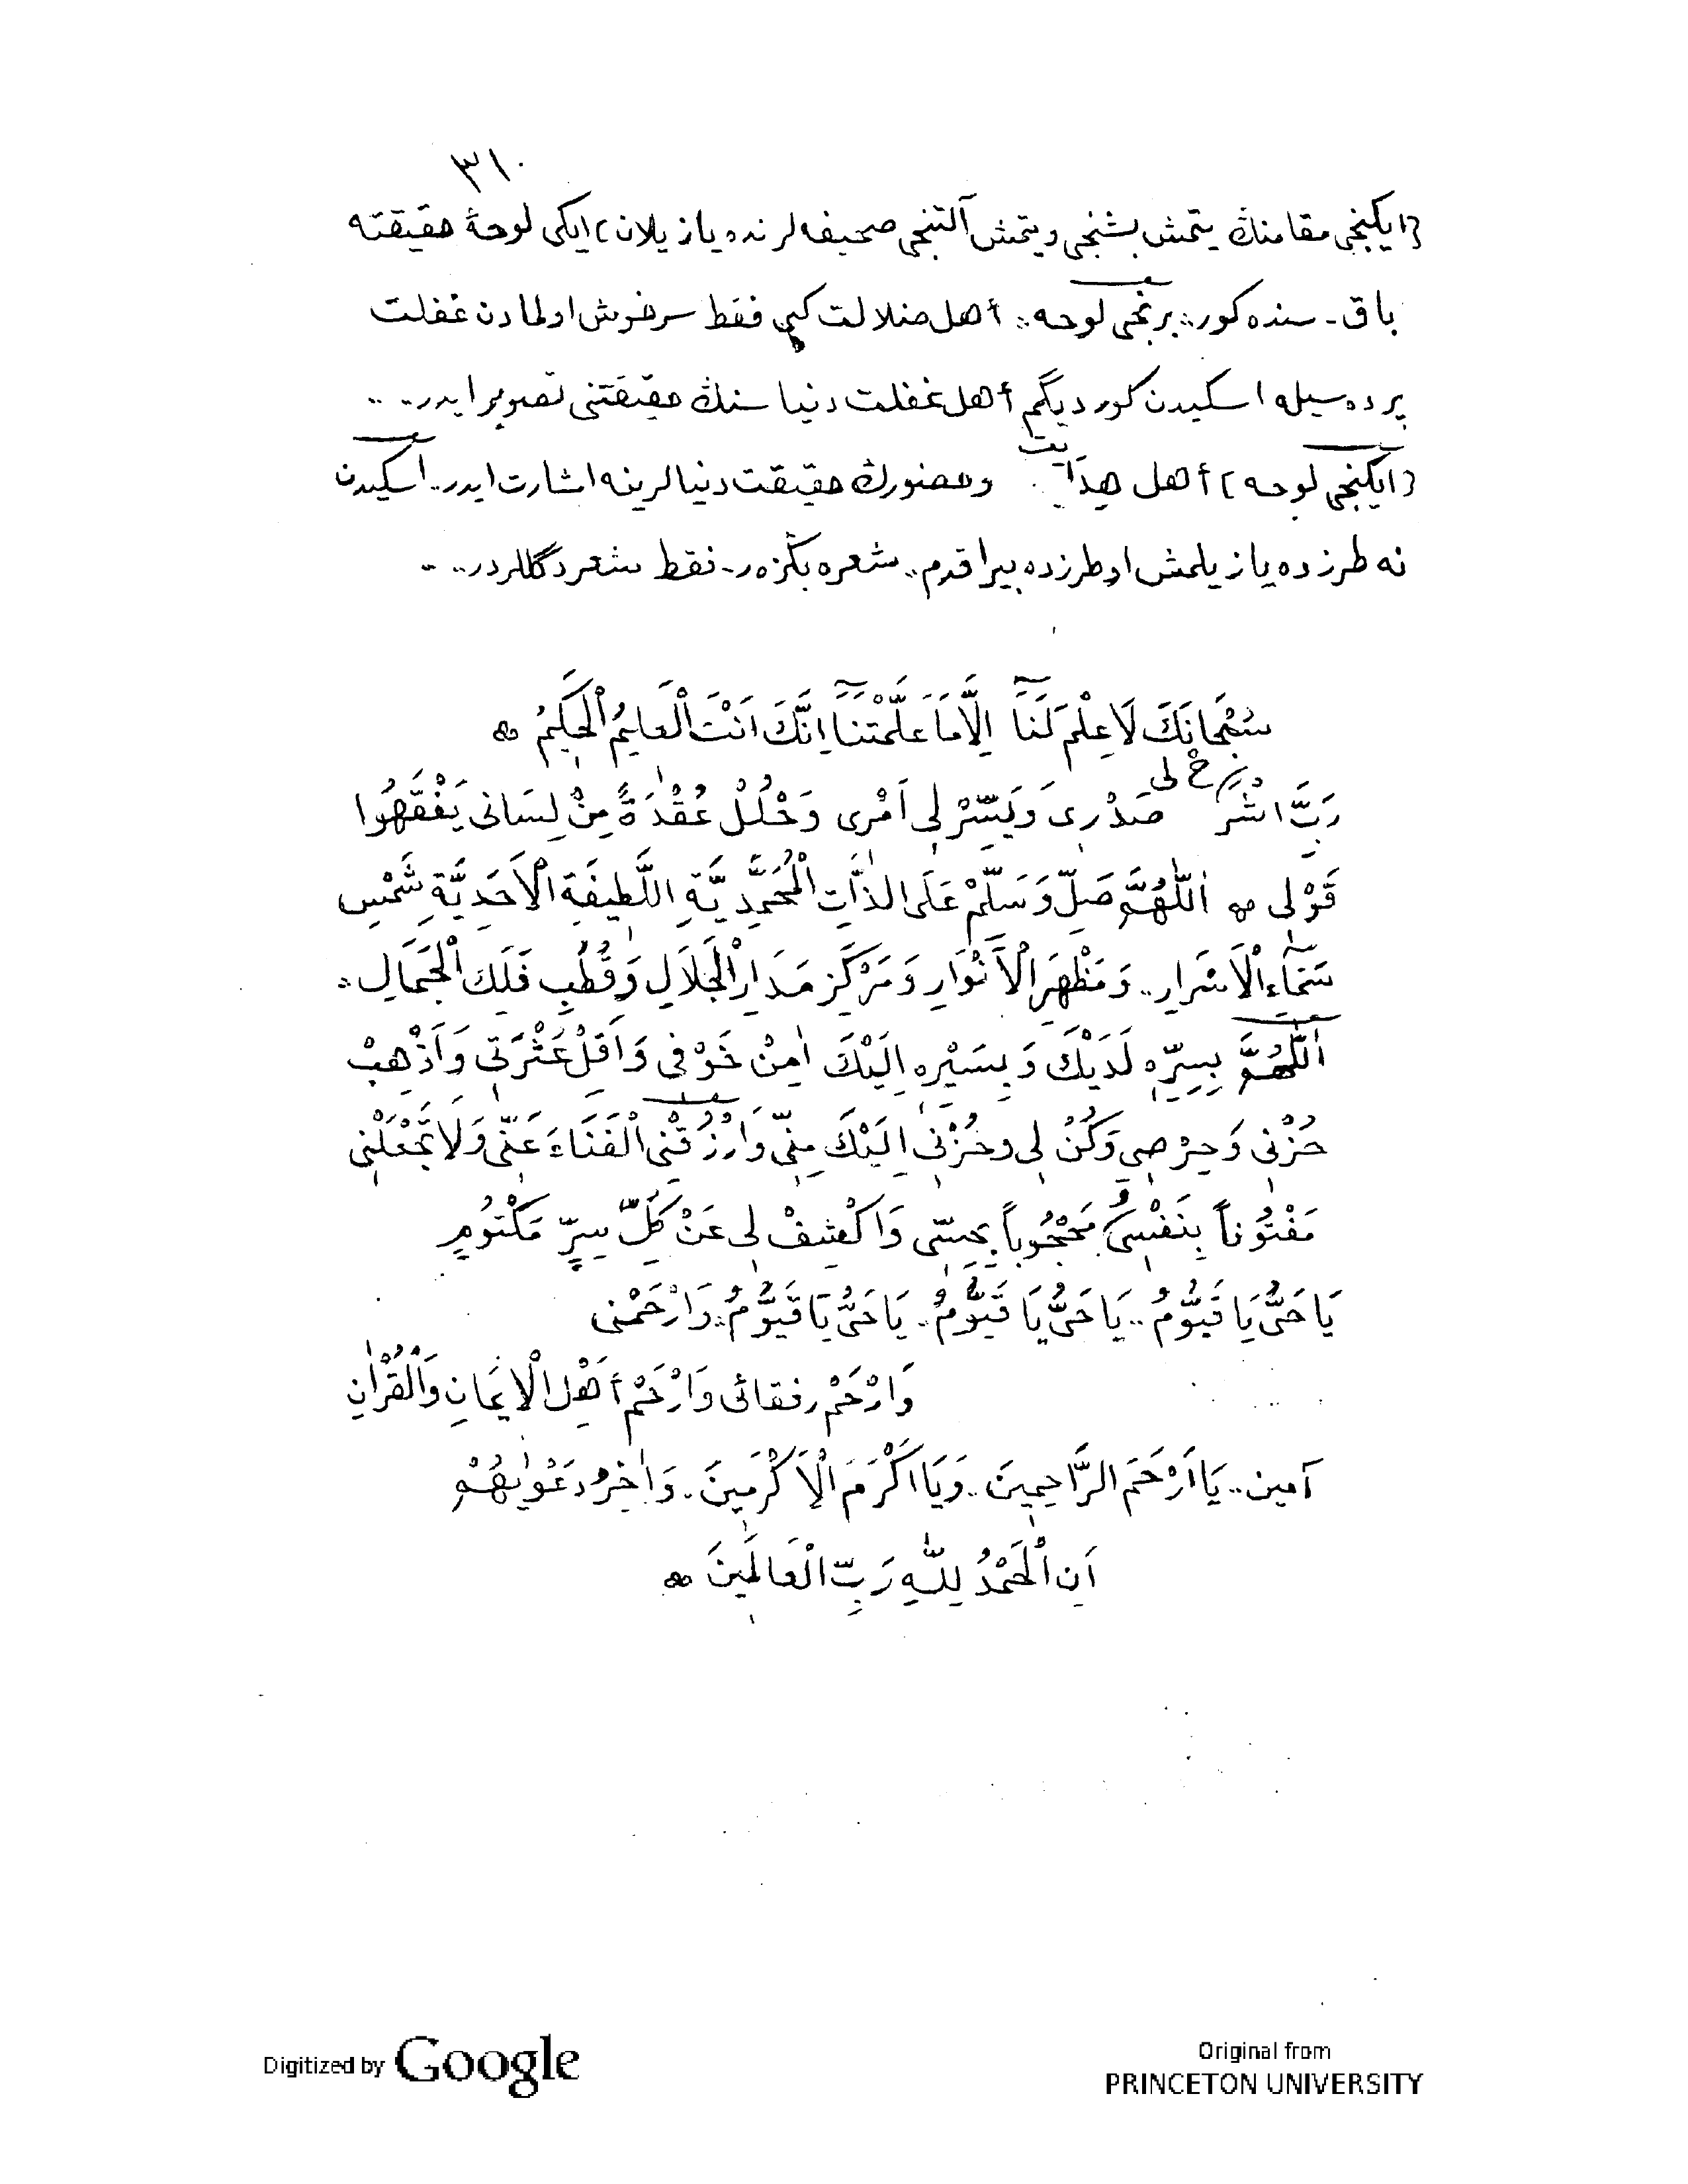 ٣١٠
{ايكنجى مقامنڭ يتمش بشنجى ويتمش آلتنجى صحيفه لرنده يازيلان} ايكى لوحۀ حقيقته
باق ـ سنده كور :: برنجى لوحه :: أهل ضلالت كبى فقط سرخوش اولمادن غفلت
پرده سيله اسكيدن كورديگم أهل غفلت دنياسنڭ حقيقتنى تصوير ايدر..
{ايكنجى لوحه} أهل هدايت وحضورڭ حقيقت دنيالرينه اشارت ايدر.. اسكيدن
نه طرزده يازيلمش اوطرزده بيراقدم .. شعره بڭزر ـ فقط شعر دگللردر..
سُبْحَانَكَ لَا عِلْمَ لَنَٓا اِلَّا مَا عَلَّمْتَنَٓا اِنَّكَ اَنْتَ الْعَلِيمُ الْحَكِيمُ
رَبِّ اشْرَحْ لِى صَدْرِى وَيَسِّرْ لِى اَمْرِى وَحْلُلْ عُقْدَةً مِنْ لِسَانِى يَفْقَهُوا
قَوْلِى اَللّٰهُمَّ صَلِّ وَسَلِّمْ عَلَى الذَّاتِ الْمُحَمَّدِيَّةِ اللَّطِيفَةِ الْاَحَدِيَّةِ شَمْسِ
سَمَٓاءِ الْاَسْرَارِ .. وَمَظْهَرِ الْاَنْوَارِ وَمَرْكَزِ مَدَارِ الْجَلَالِ وَقُطْبِ فَلَكِ الْجَمَالِ ::
اَللّٰهُمَّ بِسِرِّهِ لَدَيْكَ وَبِسَيْرِهِ اِلَيْكَ اٰمِنْ خَوْفِى وَاَقِلْ عَثْرَتِى وَاَذْهِبْ
حُزْنِى وَحِرْصِى وَكُنْ لِى وخُزْنِى اِلَيْكَ مِنِّى وَارْزُقْنِى الْفَنَاءَ عَنِّى وَلَا تَجْعَلْنِى
مَفْتُونًا بِنَفْسِى مَحْجُوبًا بِحِسِّى وَاكْشِفْ لِى عَنْ كُلِّ سِرٍّ مَكْتُومٍ
يَا حَىُّ يَا قَيُّومُ .. يَا حَىُّ يَا قَيُّومُ .. يَا حَىُّ يَا قَيُّومُ :: وَارْحَمْنِى
وَارْحَمْ رفقائى وَارْحَمْ أَهْلَ الْاِيمَانِ وَالْقُرْاٰنِ
آمين .. يَا اَرْحَمَ الرَّاحِمِينَ .. وَيَا اَكْرَمَ الْاَكْرَمِينَ .. وَاٰخِرُ دَعْوٰيهُمْ
اَنِ الْحَمْدُ لِلّٰهِ رَبِّ الْعَالَمِينَ
Digitized by Google
Original from
PRINCETON UNIVERSITY